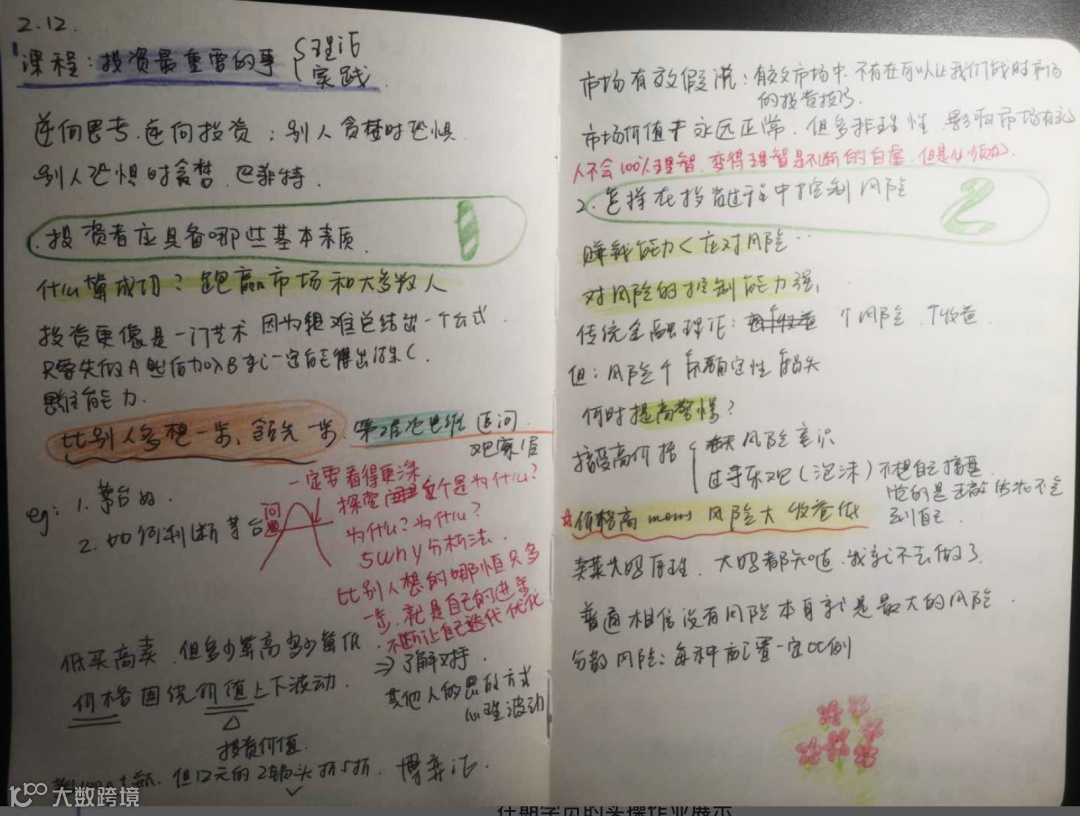 2.12.
课程：投资最重要的事 { 理论
实践
逆向思考、逆向投资：别人贪婪时恐惧
别人恐惧时贪婪 巴菲特
1. 投资者应具备哪些基本素质
什么算成功？跑赢市场和大多数人
投资更像是一门艺术 因为很难总结出一个公式
只要失的A 加入B 就一定能得出结果C
思维能力
比别人多想一步、领先一步. 第二层次思维 逆向
观察后
eg: 1. 茅台
2. 如何判断茅台
问题
一定要看得更深
探究 这个是为什么？
为什么？为什么？
5why分析法.
比别人想的哪怕只多
一步, 就是自己的进步
不断让自己迭代优化
低买高卖 但多少算高多少算低
=> 了解对手.
价格围绕价值上下波动.
其他人的思考方式
心理波动
投资价值.
但12元的2锅头 打5折. 博弈论.
市场有效假说：有效市场中 不存在可以让我们战胜市场
的投资技巧
市场价值 永远正常, 但多非理性 影响市场有效
人不会100%理智, 变得理智是不断的自虐, 但是必须的.
2. 怎样在投资过程中控制风险 2
赚钱能力<应对风险…
对风险的控制能力强,
传统金融理论： 个风险 ↑收益
但：风险个 不确定性 损失
何时提高警惕？
接受高价格 { 缺失风险意识
过等乐观（泡沫）不想自己接盘
到自己.
☆价格高 mems 风险大 收益低
卖菜大妈原理. 大妈都知道 我就不去做了.
普遍相信没有风险本身就是最大的风险.
分散风险：每种配置一定比例
大数跨境
往期学员的实操作业展示